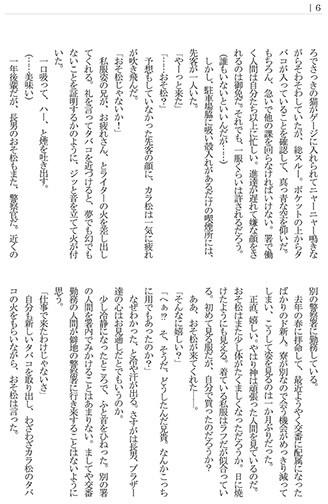 6
ろでさっきの猫がゲージに入れられてニャーニャー鳴きな
がらそわそわしていたが、総スルー。ポケットの上からタ
バコが入っていることを確認して、真っ青な空を仰いだ。
もちろん、急いで他の課を回らなければいけない。署で働
く人間は自分たち以上に忙しい。進達が遅れて嫌な顔をさ
れるのは御免だ。それでも、一服くらいは許されるだろう。
(誰もいないといいんだが…)
しかし、駐車場脇に吸い殻入れがあるだけの喫煙所には、
先客が一人いた。
「やーっと来た」
「……おそ松?」
予想もしていなかった先客の顔に、カラ松は一気に疲れ
が吹き飛んだ。
「おそ松じゃないか!」
私服姿の兄が、お疲れさん、とライターの火を差し出し
てくれる。礼を言ってタバコを近づけると、夢でも幻でも
ないことを証明するかのように、ジッと音を立てて火が付
いた。
一口吸って、はー、と煙を吐き出す。
(……美味い)
一年後輩だが、長男のおそ松もまた、警察官だ。近くの
別の警察署に勤務している。
去年の春に拝命して、最近ようやく交番に配属になった
ばかりのド新人。寮が別なので会う機会がめっきり減って
しまい、こうして姿を見るのは一か月ぶりだった。
正直、嬉しい。やはり神は頑張った人間を見ているのだ。
おそ松はまた少し体がたくましくなっただろうか。日に焼
けたようにも見える。着ている私服はうつだが似合ってい
る。初めて見る服だが、自分で買ったのだろうか?
ああ、おそ松が来てくれた――。
「そんなに嬉しい?」
「へぁ!? そ、そうだ、どうしたんだ兄貴、なんかこっち
に用でもあったのか?」
なぜわかった、と冷や汗が出る。さすがは長男、ブラザー
達の心はお見通しだとでもいうのか。
少し冷静になったところで、ふと首をひねった。別の署
の人間を署内でみかけることはあまりない。ましてや交番
勤務の人間が僻地の警察署に行き来することはないように
思う。
「仕事で来たわけじゃないさ」
自分も新しいタバコを取り出し、わざわざカラ松のタバ
コの火をもらいながら、おそ松は言った。